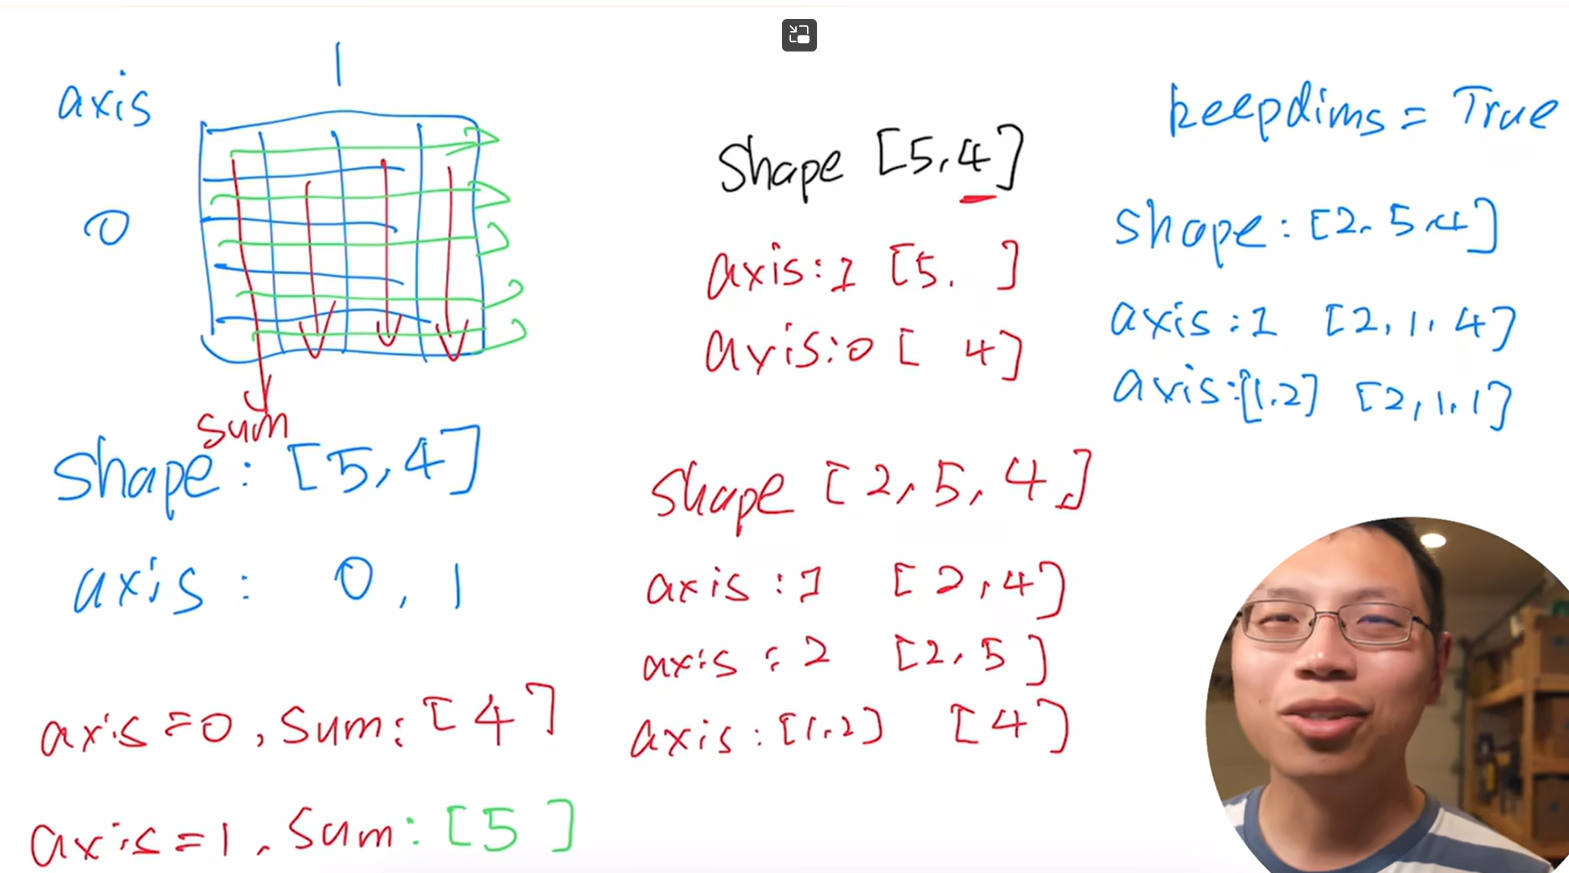 1
axis
0
sum
shape: [5,4]
axis: 0, 1
axis=0, sum: [4]
axis=1, sum: [5 ]
shape [5,4]
axis:1 [5, ]
axis:0 [ 4]
shape [2,5,4,]
axis:1 [2,4]
axis:2 [2,5]
axis:[1,2] [4]
keepdims=True
shape:[2,5,4]
axis:1 [2,1,4]
axis:[1,2] [2,1,1]